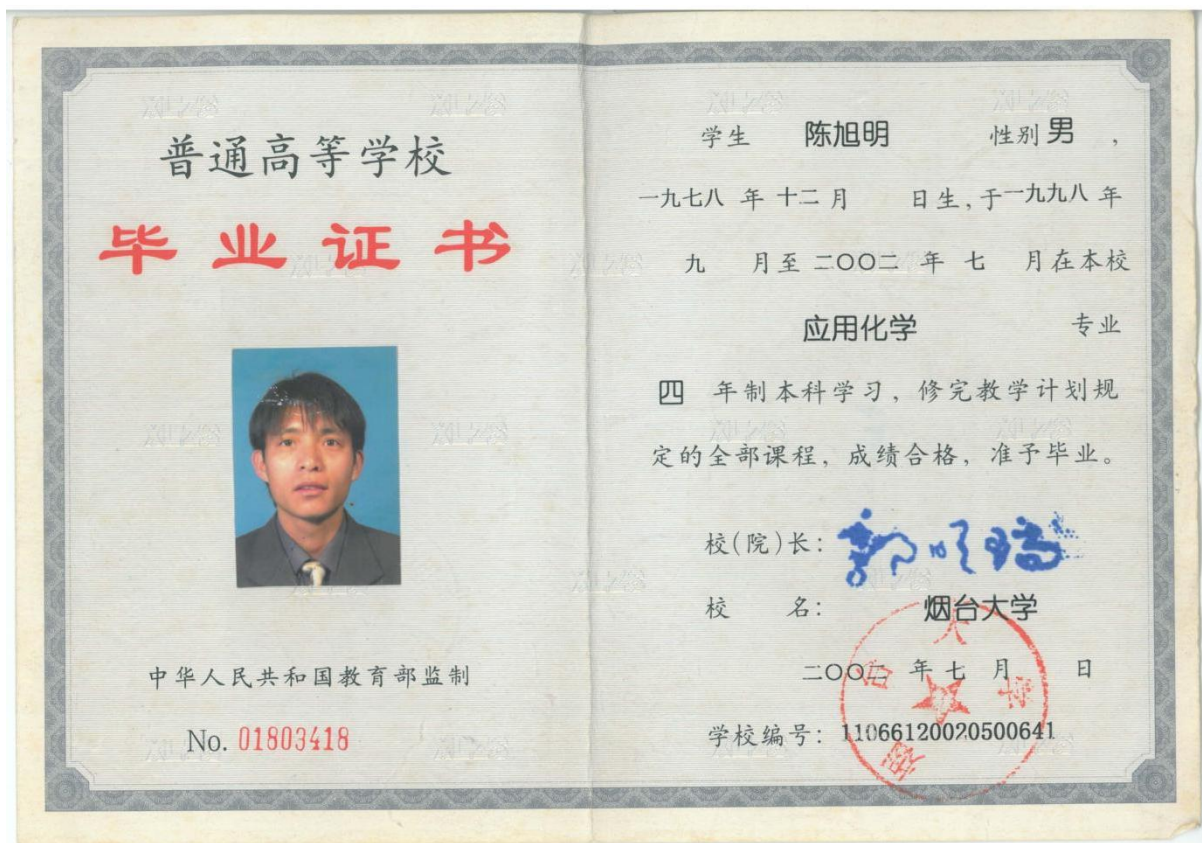 普通高等学校
毕业证书
中华人民共和国教育部监制
No. 01803418
学生 陈旭明 性别 男 ,
一九七八 年 十二 月 日生, 于 一九九八 年
九 月至 二〇〇二 年 七 月在本校
应用化学 专业
四 年制本科学习, 修完教学计划规
定的全部课程, 成绩合格, 准予毕业。
校(院)长:
校 名: 烟台大学
二〇〇二 年 七 月 日
学校编号: 110661200205006​41
烟台大学